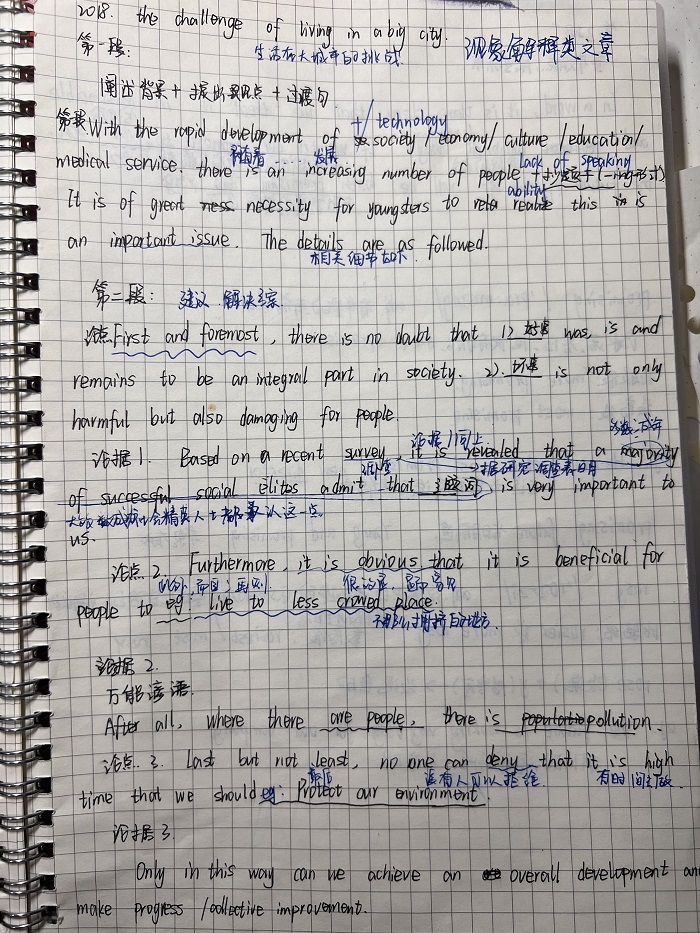 2018. the challenge of living in a big city.
第一段: 生活在大城市的挑战 现象解释类文章
阐出背景+提出观点+过渡句
+/ technology
With the rapid development of society /economy/ culture /education/
随着......发展 Lack of speaking
medical service. there is an increasing number of people + (-ing形式)
ability
It is of great necessity for youngsters to realize this is
an important issue. The details are as followed.
相关细节如下.
第二段: 建议 解决方案
论点First and foremost, there is no doubt that 1) 好事 was, is and
remains to be an integral part in society. 2). 坏事 is not only
harmful but also damaging for people.
论据1同上
论据1. Based on a recent survey, it is revealed that a majority
调查 据研究调查表明
of successful social elites admit that 主题词 is very important to
大多数成功社会精英人士都承认这一点
us.
论点2. Furthermore, it is obvious that it is beneficial for
此外,而且;再则 很明显 显而易见
people to eg: live to less crowed place.
不那么拥挤的地方.
论据2.
万能谚语.
After all, where there are people, there is pollution.
论点. 3. Last but not least, no one can deny that it is high
最后 没有人可以拒绝 有时间去做
time that we should eg: Protect our environment.
论据3.
Only in this way can we achieve an overall development an
make progress /collective improvement.